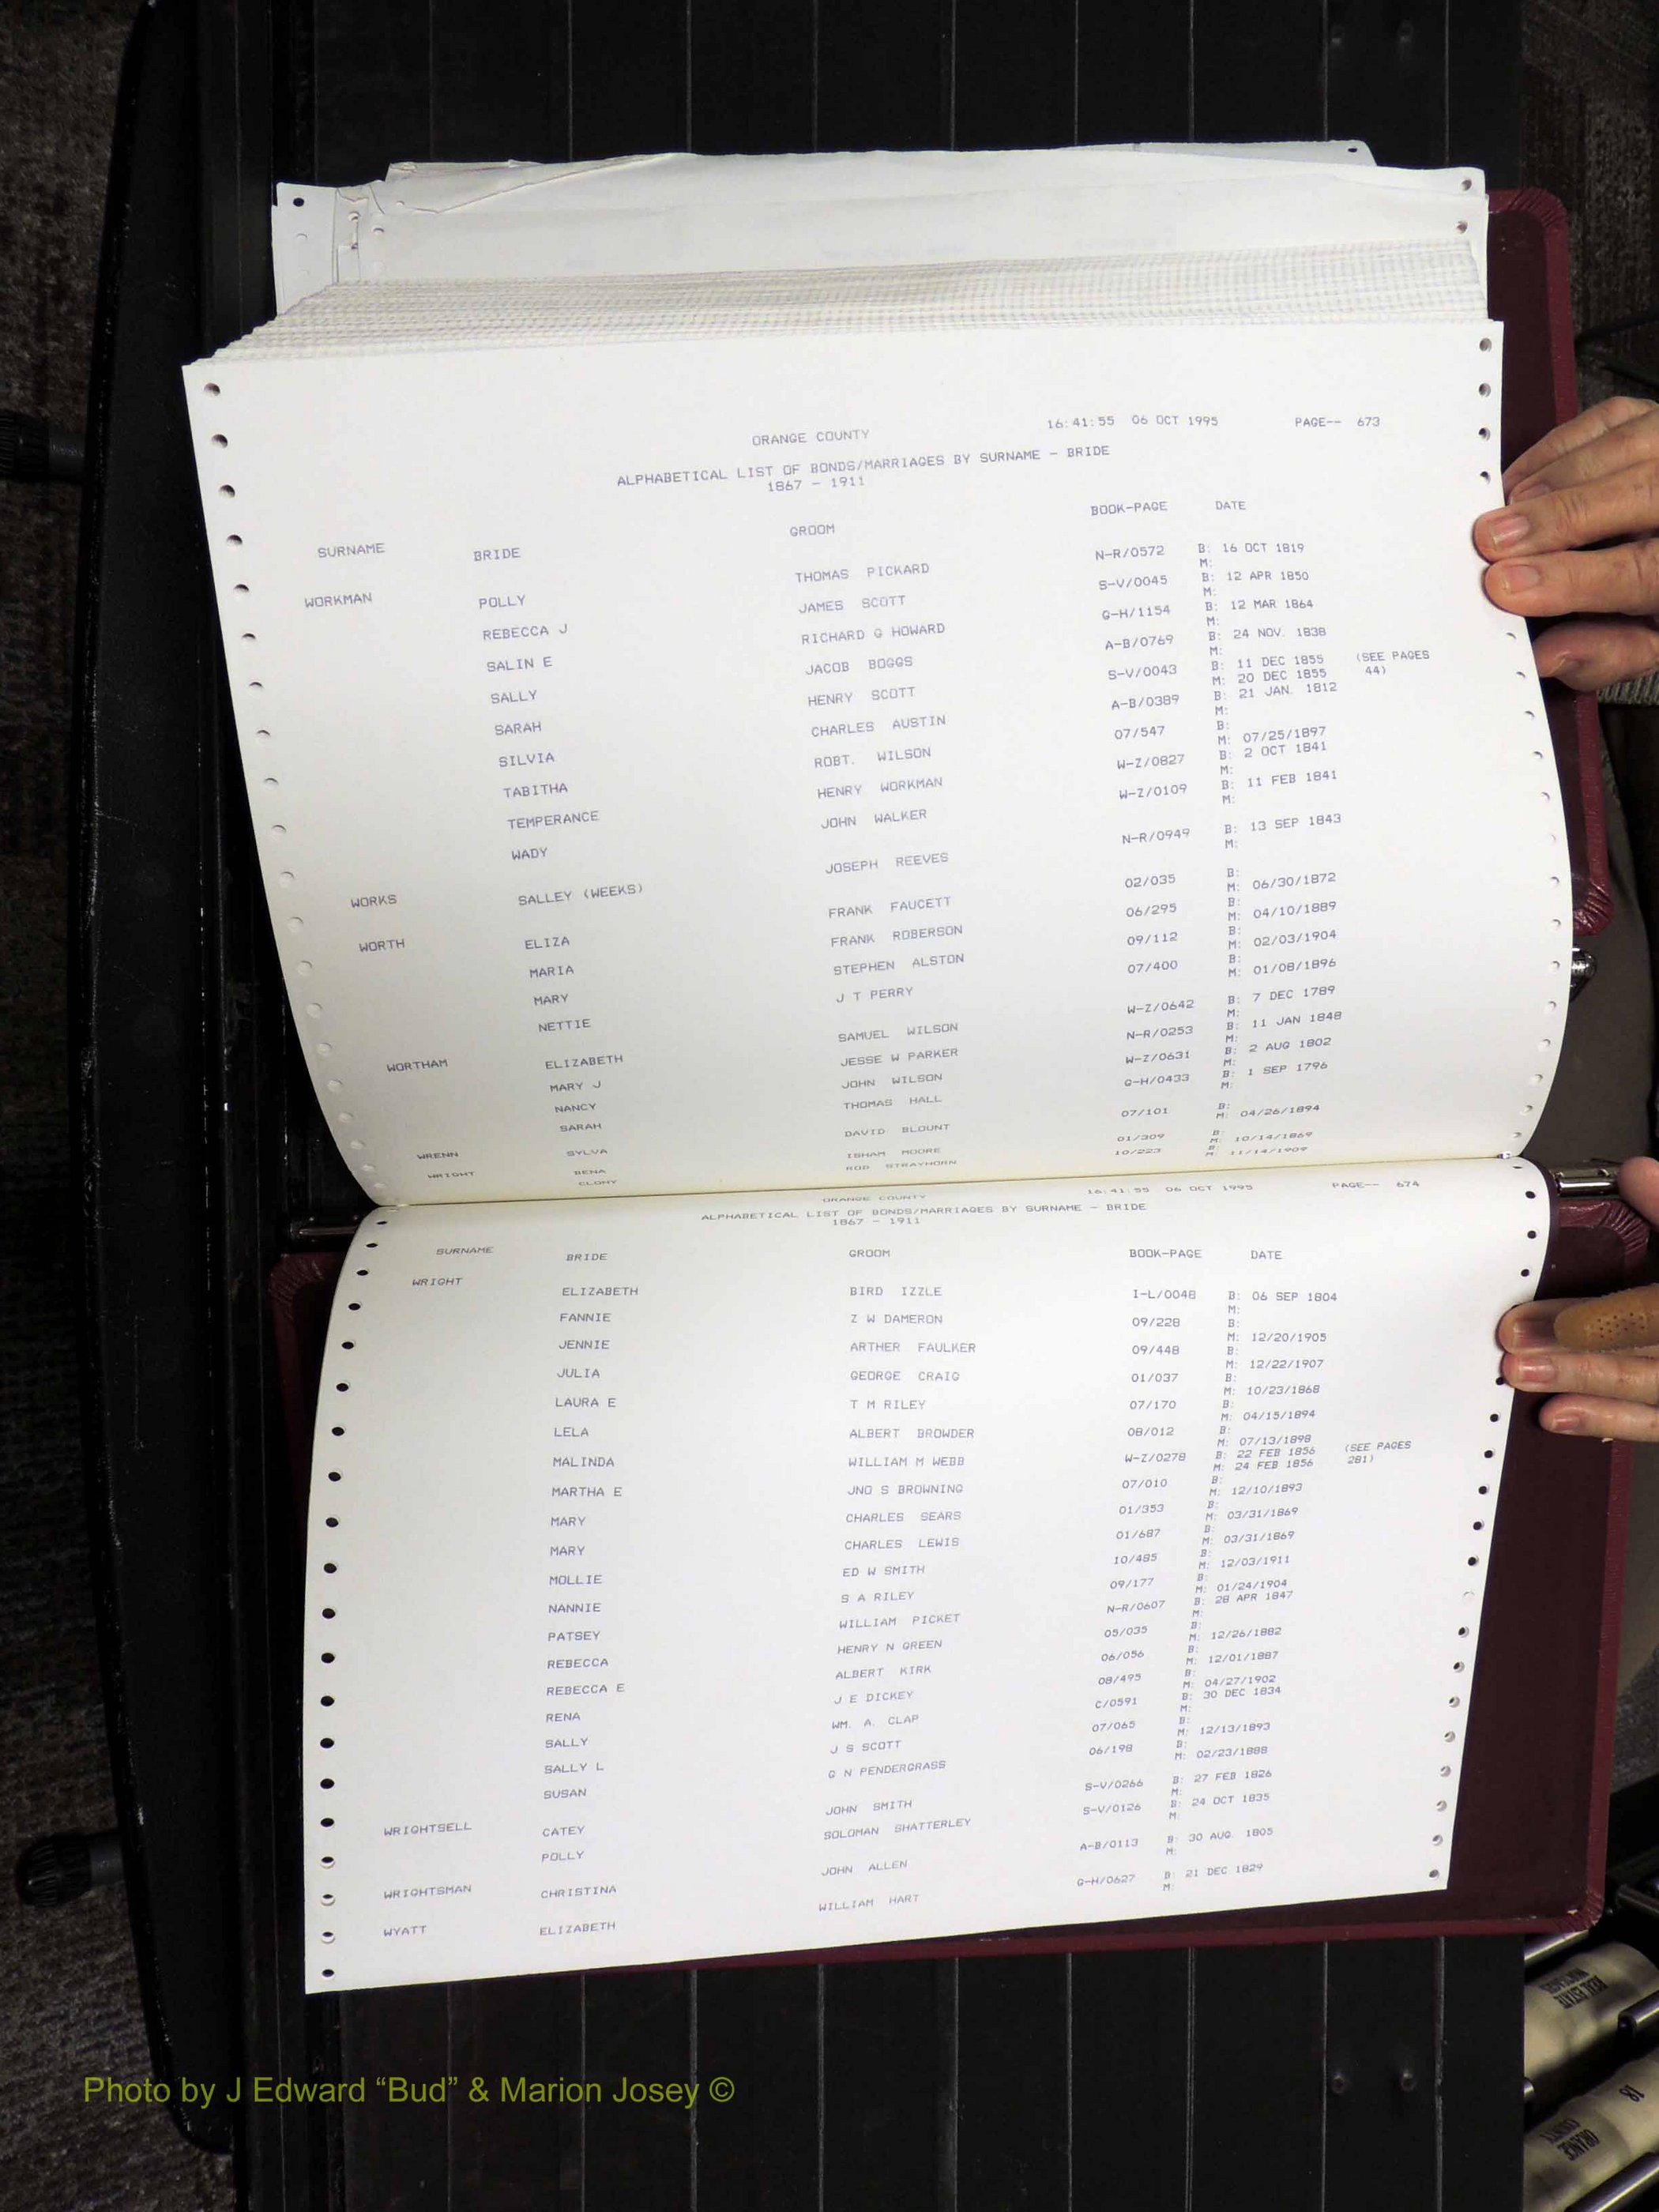 16:41:55 06 OCT 1995 PAGE-- 673
ORANGE COUNTY
ALPHABETICAL LIST OF BONDS/MARRIAGES BY SURNAME - BRIDE
1867 - 1911
SURNAME BRIDE GROOM BOOK-PAGE DATE
WORKMAN POLLY THOMAS PICKARD N-R/0572 B: 16 OCT 1819
M:
REBECCA J JAMES SCOTT S-V/0045 B: 12 APR 1850
M:
SALIN E RICHARD G HOWARD G-H/1154 B: 12 MAR 1864
M:
SALLY JACOB BOGGS A-B/0769 B: 24 NOV. 1838
M:
SARAH HENRY SCOTT S-V/0043 B: 11 DEC 1855 (SEE PAGES
M: 20 DEC 1855 44)
SILVIA CHARLES AUSTIN A-B/0389 B: 21 JAN. 1812
M:
TABITHA ROBT. WILSON 07/547 B:
M: 07/25/1897
TEMPERANCE HENRY WORKMAN W-Z/0827 B: 2 OCT 1841
M:
WADY JOHN WALKER W-Z/0109 B: 11 FEB 1841
M:
WORKS SALLEY (WEEKS) JOSEPH REEVES N-R/0949 B: 13 SEP 1843
M:
WORTH ELIZA FRANK FAUCETT 02/035 B:
M: 06/30/1872
MARIA FRANK ROBERSON 06/295 B:
M: 04/10/1889
MARY STEPHEN ALSTON 09/112 B:
M: 02/03/1904
NETTIE J T PERRY 07/400 B:
M: 01/08/1896
WORTHAM ELIZABETH SAMUEL WILSON W-Z/0642 B: 7 DEC 1789
M:
MARY J JESSE W PARKER N-R/0253 B: 11 JAN 1848
M:
NANCY JOHN WILSON W-Z/0631 B: 2 AUG 1802
M:
SARAH THOMAS HALL G-H/0433 B: 1 SEP 1796
M:
WRENN SYLVA DAVID BLOUNT 07/101 B:
M: 04/26/1894
WRIGHT BENA ISHAM MOORE 01/309 B:
M: 10/14/1869
CLONY ROD STRAYHORN 10/223 B:
M: 11/14/1909
16:41:55 06 OCT 1995 PAGE-- 674
ORANGE COUNTY
ALPHABETICAL LIST OF BONDS/MARRIAGES BY SURNAME - BRIDE
1867 - 1911
SURNAME BRIDE GROOM BOOK-PAGE DATE
WRIGHT ELIZABETH BIRD IZZLE I-L/0048 B: 06 SEP 1804
M:
FANNIE Z W DAMERON 09/228 B:
M: 12/20/1905
JENNIE ARTHER FAULKER 09/448 B:
M: 12/22/1907
JULIA GEORGE CRAIG 01/037 B:
M: 10/23/1868
LAURA E T M RILEY 07/170 B:
M: 04/15/1894
LELA ALBERT BROWDER 08/012 B:
M: 07/13/1898
MALINDA WILLIAM M WEBB W-Z/0278 B: 22 FEB 1856 (SEE PAGES
M: 24 FEB 1856 281)
MARTHA E JNO S BROWNING 07/010 B:
M: 12/10/1893
MARY CHARLES SEARS 01/353 B:
M: 03/31/1869
MARY CHARLES LEWIS 01/687 B:
M: 03/31/1869
MOLLIE ED W SMITH 10/485 B:
M: 12/03/1911
NANNIE S A RILEY 09/177 B:
M: 01/24/1904
PATSEY WILLIAM PICKET N-R/0607 B: 28 APR 1847
M:
REBECCA HENRY N GREEN 05/035 B:
M: 12/26/1882
REBECCA E ALBERT KIRK 06/056 B:
M: 12/01/1887
RENA J E DICKEY 08/495 B:
M: 04/27/1902
SALLY WM. A. CLAP C/0591 B: 30 DEC 1834
M:
SALLY L J S SCOTT 07/065 B:
M: 12/13/1893
SUSAN G N PENDERGRASS 06/198 B:
M: 02/23/1888
WRIGHTSELL CATEY JOHN SMITH S-V/0266 B: 27 FEB 1826
M:
POLLY SOLOMAN SHATTERLEY S-V/0126 B: 24 OCT 1835
M:
WRIGHTSMAN CHRISTINA JOHN ALLEN A-B/0113 B: 30 AUG. 1805
M:
WYATT ELIZABETH WILLIAM HART G-H/0627 B: 21 DEC 1829
M:
REAL ESTATE
18
ORANGE
COUNTY
Photo by J Edward “Bud” & Marion Josey ©